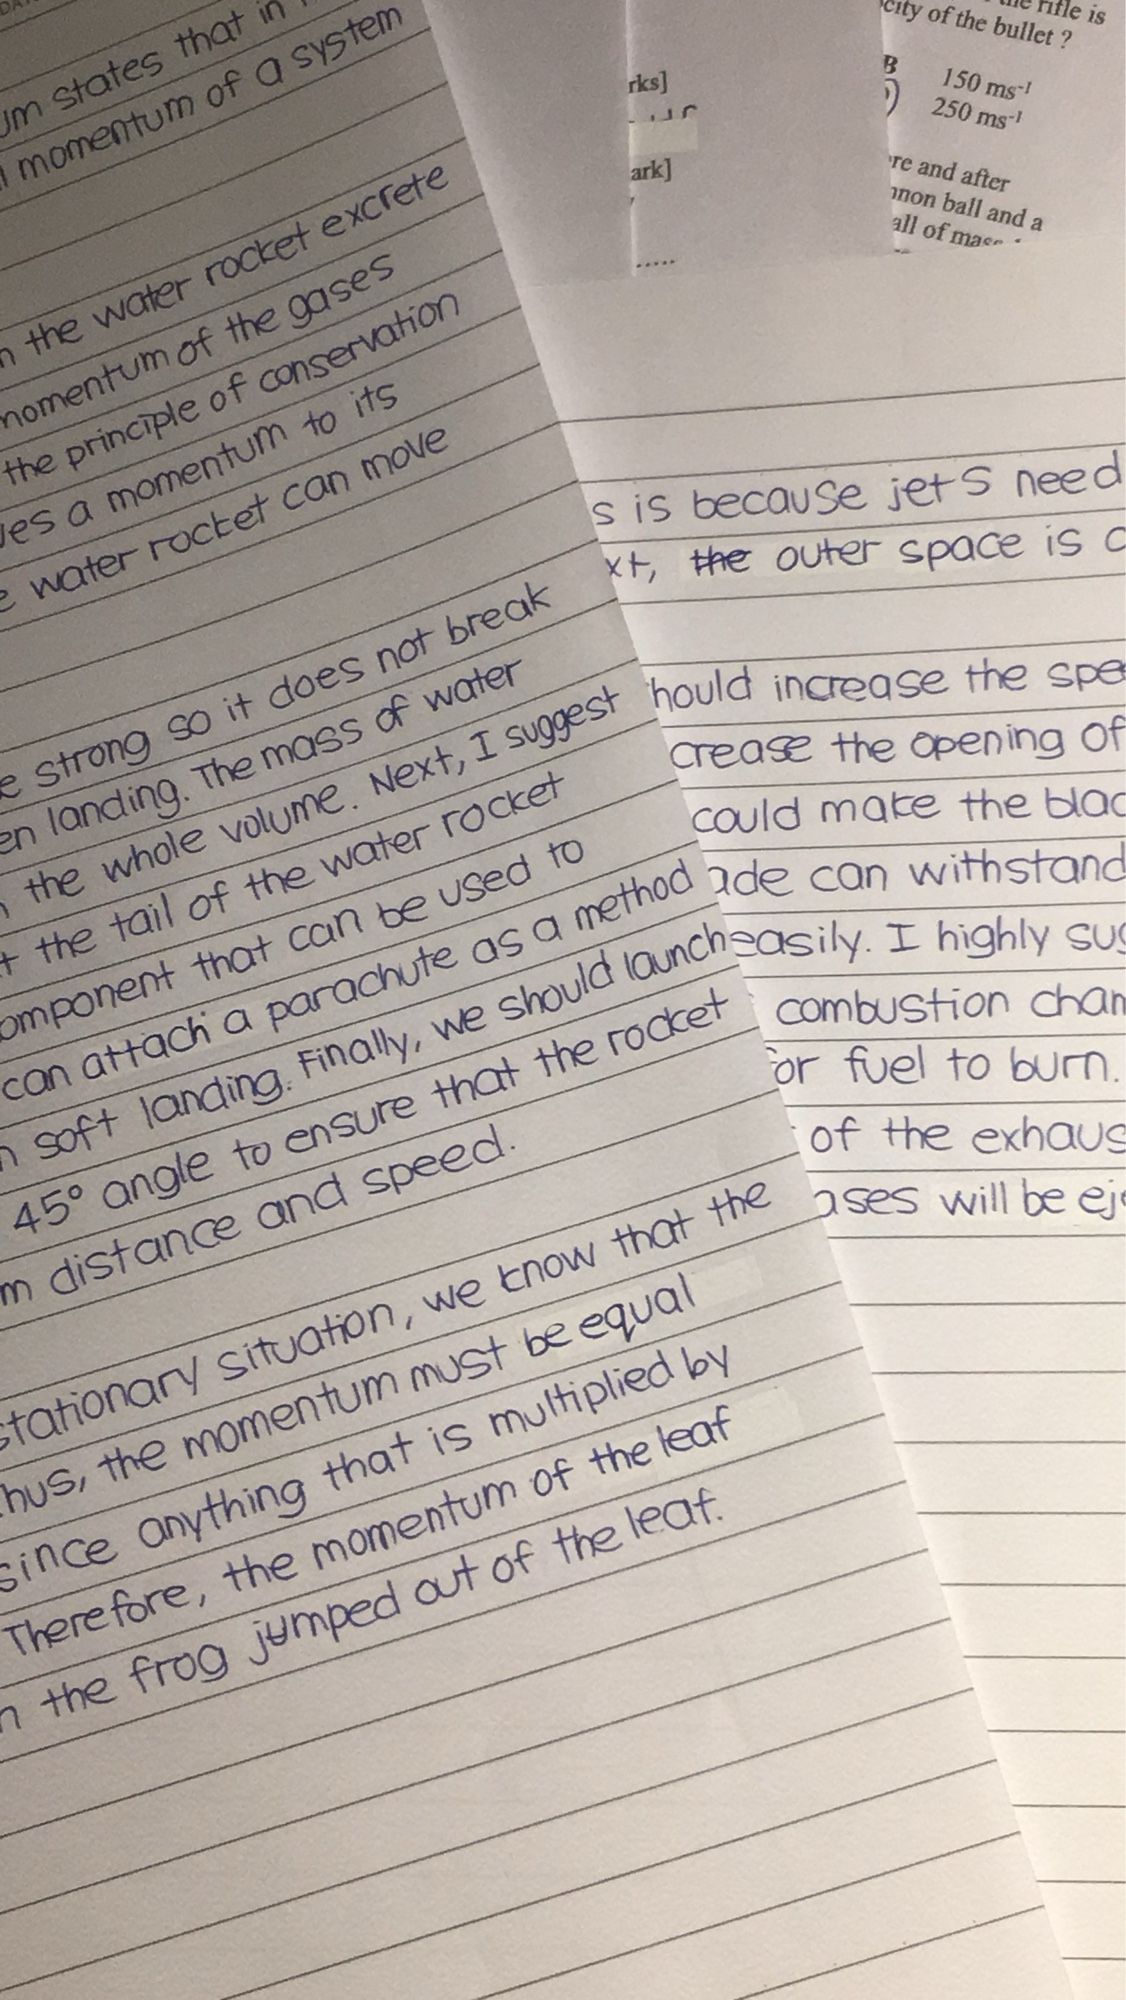 states that in
momentum of a system
the water rocket excrete
momentum of the gases
the principle of conservation
a momentum to its
water rocket can move
strong so it does not break
landing. The mass of water
the whole volume. Next, I suggest
the tail of the water rocket
component that can be used to
can attach a parachute as a method
soft landing. Finally, we should launch
45° angle to ensure that the rocket
distance and speed.
stationary situation, we know that the
the momentum must be equal
since anything that is multiplied by
Therefore, the momentum of the leaf
the frog jumped out of the leaf.
rks]
ark]
.....
the rifle is
city of the bullet ?
B 150 ms⁻¹
250 ms⁻¹
re and after
non ball and a
all of mass
s is because jets need
xt, the outer space is
hould increase the spe
crease the opening of
could make the blad
ade can withstand
easily. I highly sug
combustion cham
for fuel to burn.
of the exhaus
ases will be eje